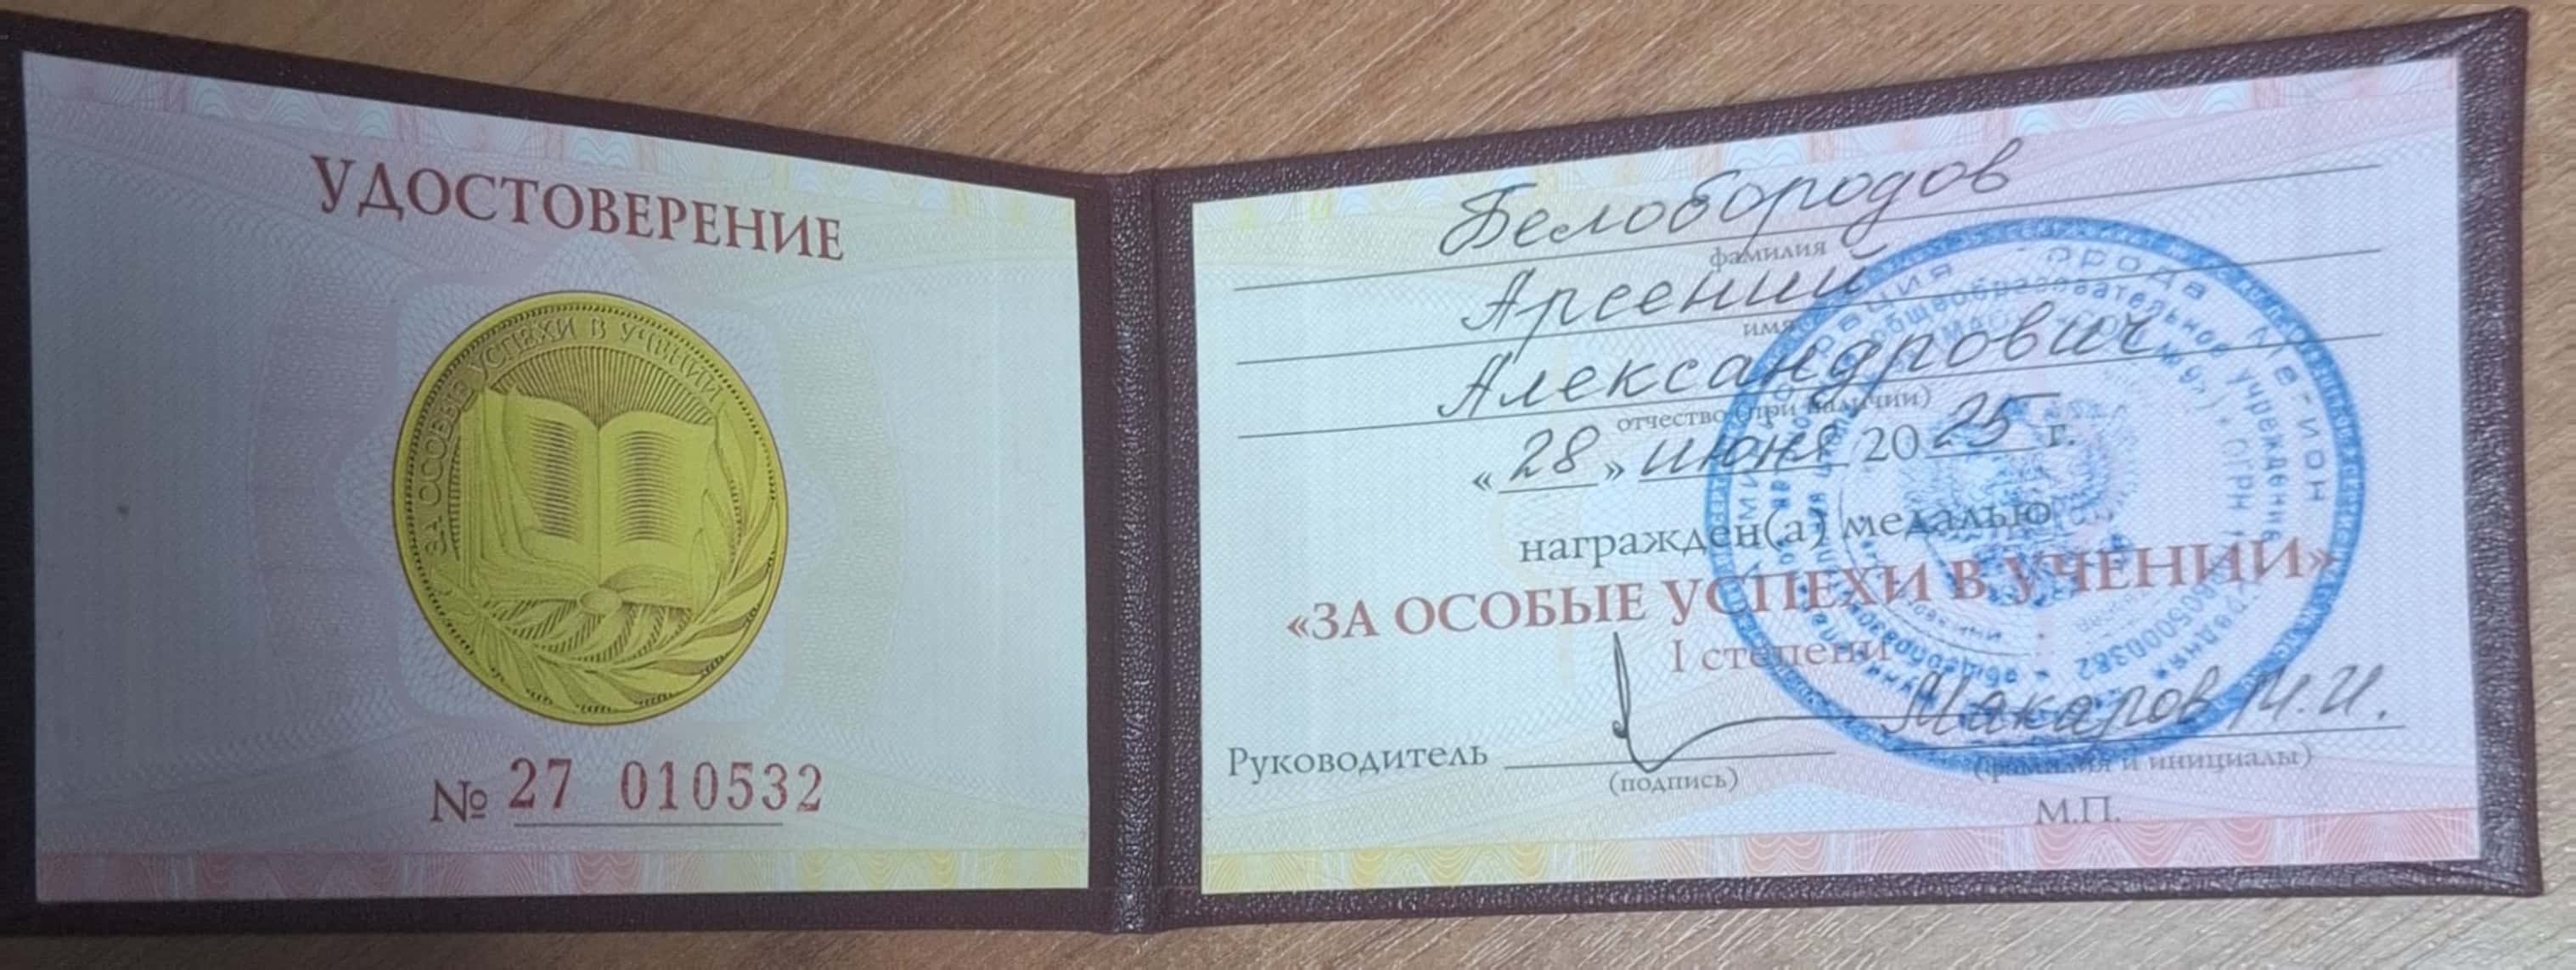 УДОСТОВЕРЕНИЕ
ЗА ОСОБЫЕ УСПЕХИ В УЧЕНИИ
№ 27 010532
Белобородов
фамилия
Арсений
имя
Александрович
отчество (при наличии)
«28» июня 2025 г.
награжден(а) медалью
«ЗА ОСОБЫЕ УСПЕХИ В УЧЕНИИ»
I степени
Руководитель
Макаров М.И.
(подпись)
(фамилия и инициалы)
М.П.
города Мегион
общеобразовательное учреждение
№ 9»
ОГРН